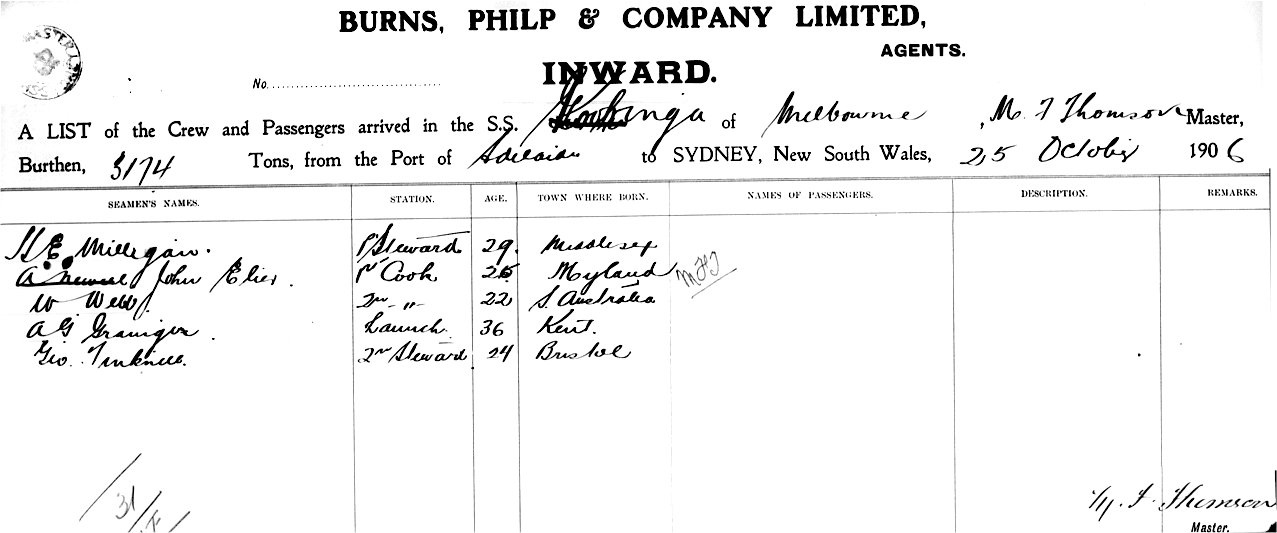 BURNS, PHILP & COMPANY LIMITED,
AGENTS.
INWARD.
No.
A LIST of the Crew and Passengers arrived in the S.S. of Melbourne , M. F Thomson Master,
Burthen, 3174 Tons, from the Port of Adelaide to SYDNEY, New South Wales, 25 October 1906
SEAMEN'S NAMES. STATION. AGE. TOWN WHERE BORN. NAMES OF PASSENGERS. DESCRIPTION. REMARKS.
H. E. Milligan. Steward 29. Middlesex
John Elies. Cook 25 Myland MFT
W Webb. 2nd -"- 22 S. Australia
A G Grainger. Launch. 36 Kent.
Geo. 2nd Steward 24 Bristol
31/
M. F. Thomson
Master.